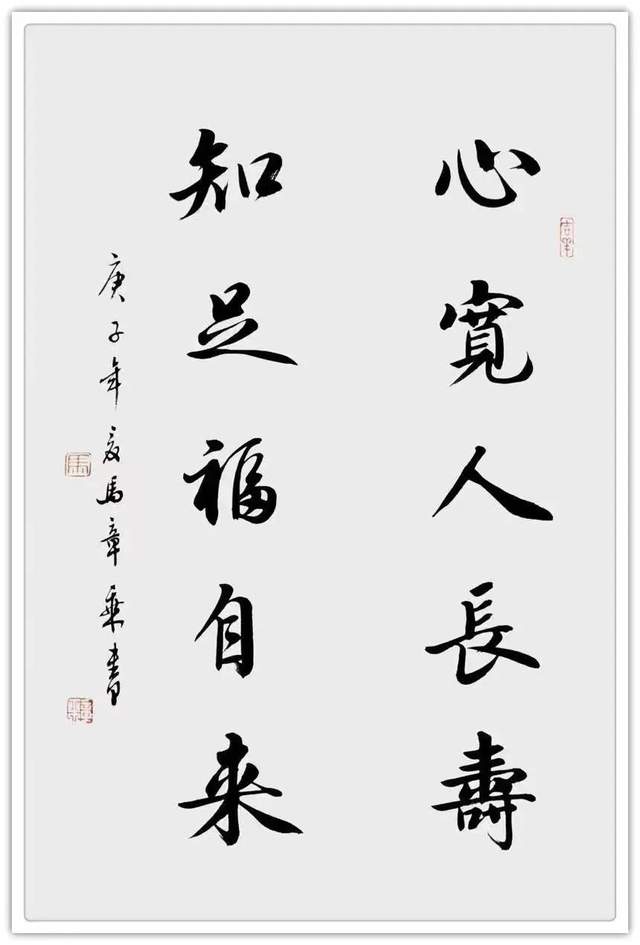 心寬人長壽
知足福自来
庚子年夏馬章乘書